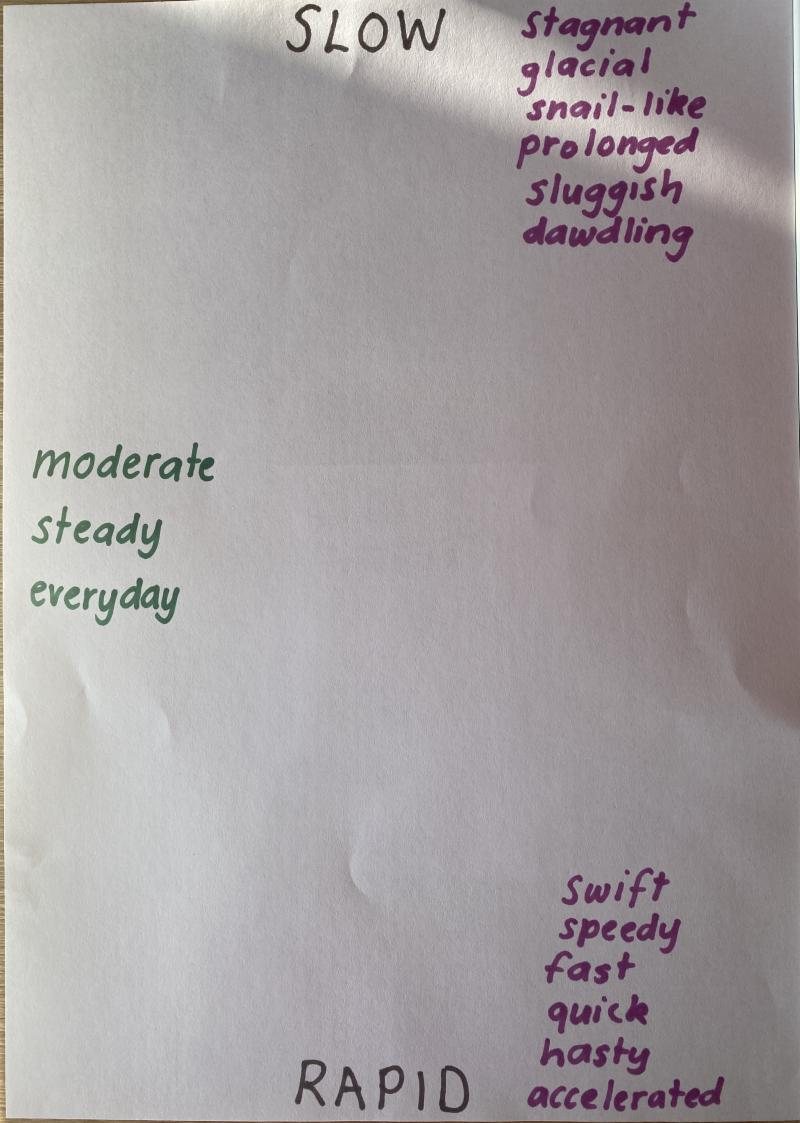 SLOW
stagnant
glacial
snail-like
prolonged
sluggish
dawdling
moderate
steady
everyday
swift
speedy
fast
quick
hasty
accelerated
RAPID